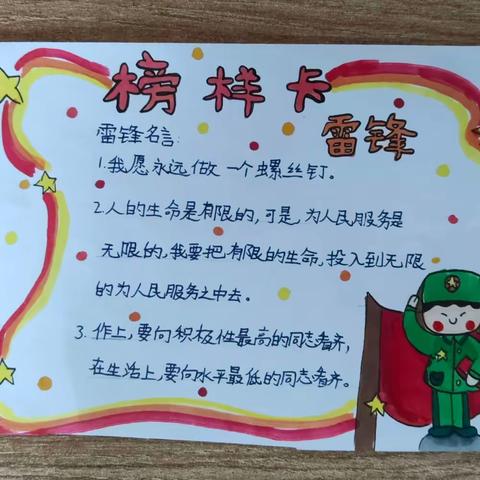 榜样卡
雷锋
雷锋名言:
1.我愿永远做一个螺丝钉。
2.人的生命是有限的,可是,为人民服务是
无限的,我要把有限的生命,投入到无限
的为人民服务之中去。
3.作上,要向积极性最高的同志看齐,
在生活上,要向水平最低的同志看齐。